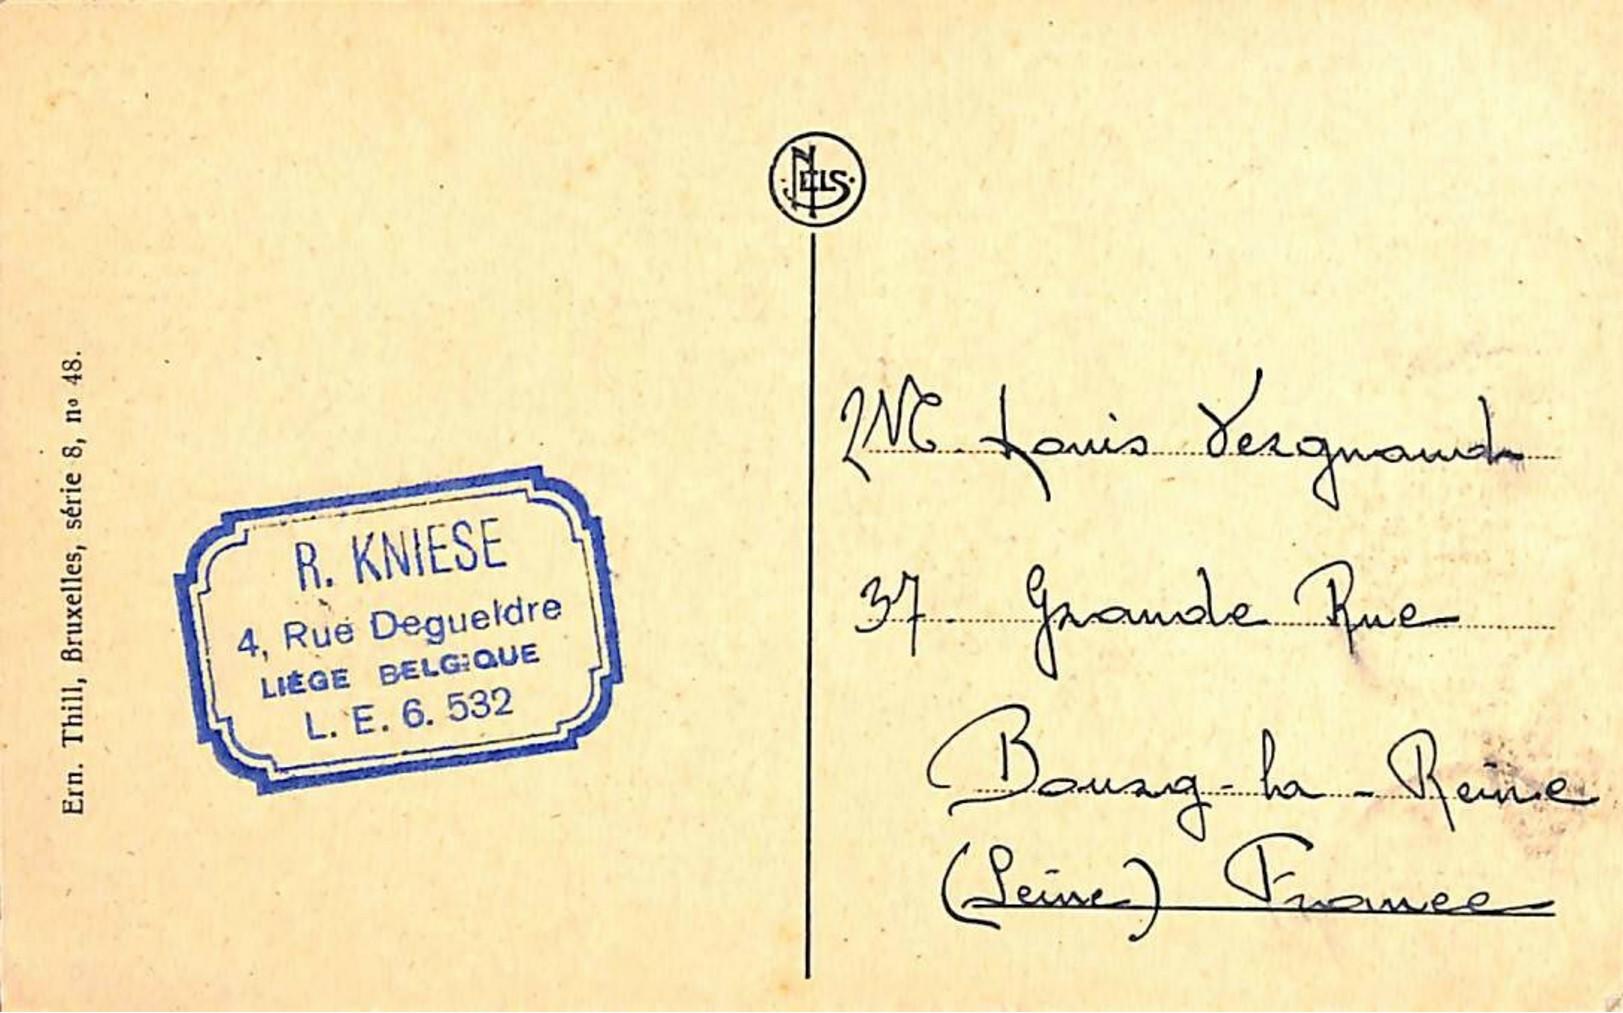 Ern. Thill, Bruxelles, série 8, nº 48.
NELS
R. KNIESE
4, Rue Degueldre
LIÈGE BELGIQUE
L. E. 6. 532
M. Louis Vergnaud
37 Grande Rue
Bourg-la-Reine
(Seine) France